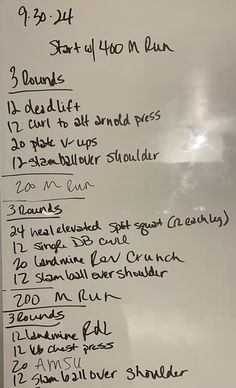 9.30.24
Start w/ 400 M Run
3 Rounds
12 deadlift
12 curl to alt arnold press
20 plate v-ups
12 slam ball over shoulder
200 M Run
3 Rounds
24 heal elevated split squat (12 each leg)
12 single DB curl
20 landmine Rev Crunch
12 slam ball over shoulder
200 M Run
3 Rounds
12 landmine RDL
12 kb chest presses
20 AMSU
12 slam ball over shoulder